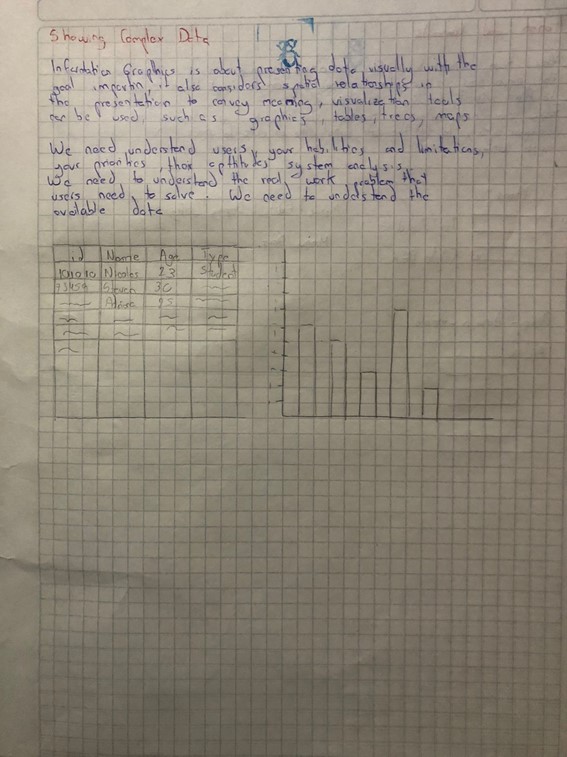 Showing Complex Data
8
Information Graphics is about presenting data, visually with the
goal importin, it also considers spatial relationships in
the presentation to convey meaning, visualization tools
can be used, such as graphics, tables, trees, maps
We need understand users, your habilities and limitations,
your priorities thor aptitudes system analysis.
We need to understand the real-work problem that
users need to solve. We need to understand the
available data
id Name Age Type
Nicolas 23 Student
Steven 30
25